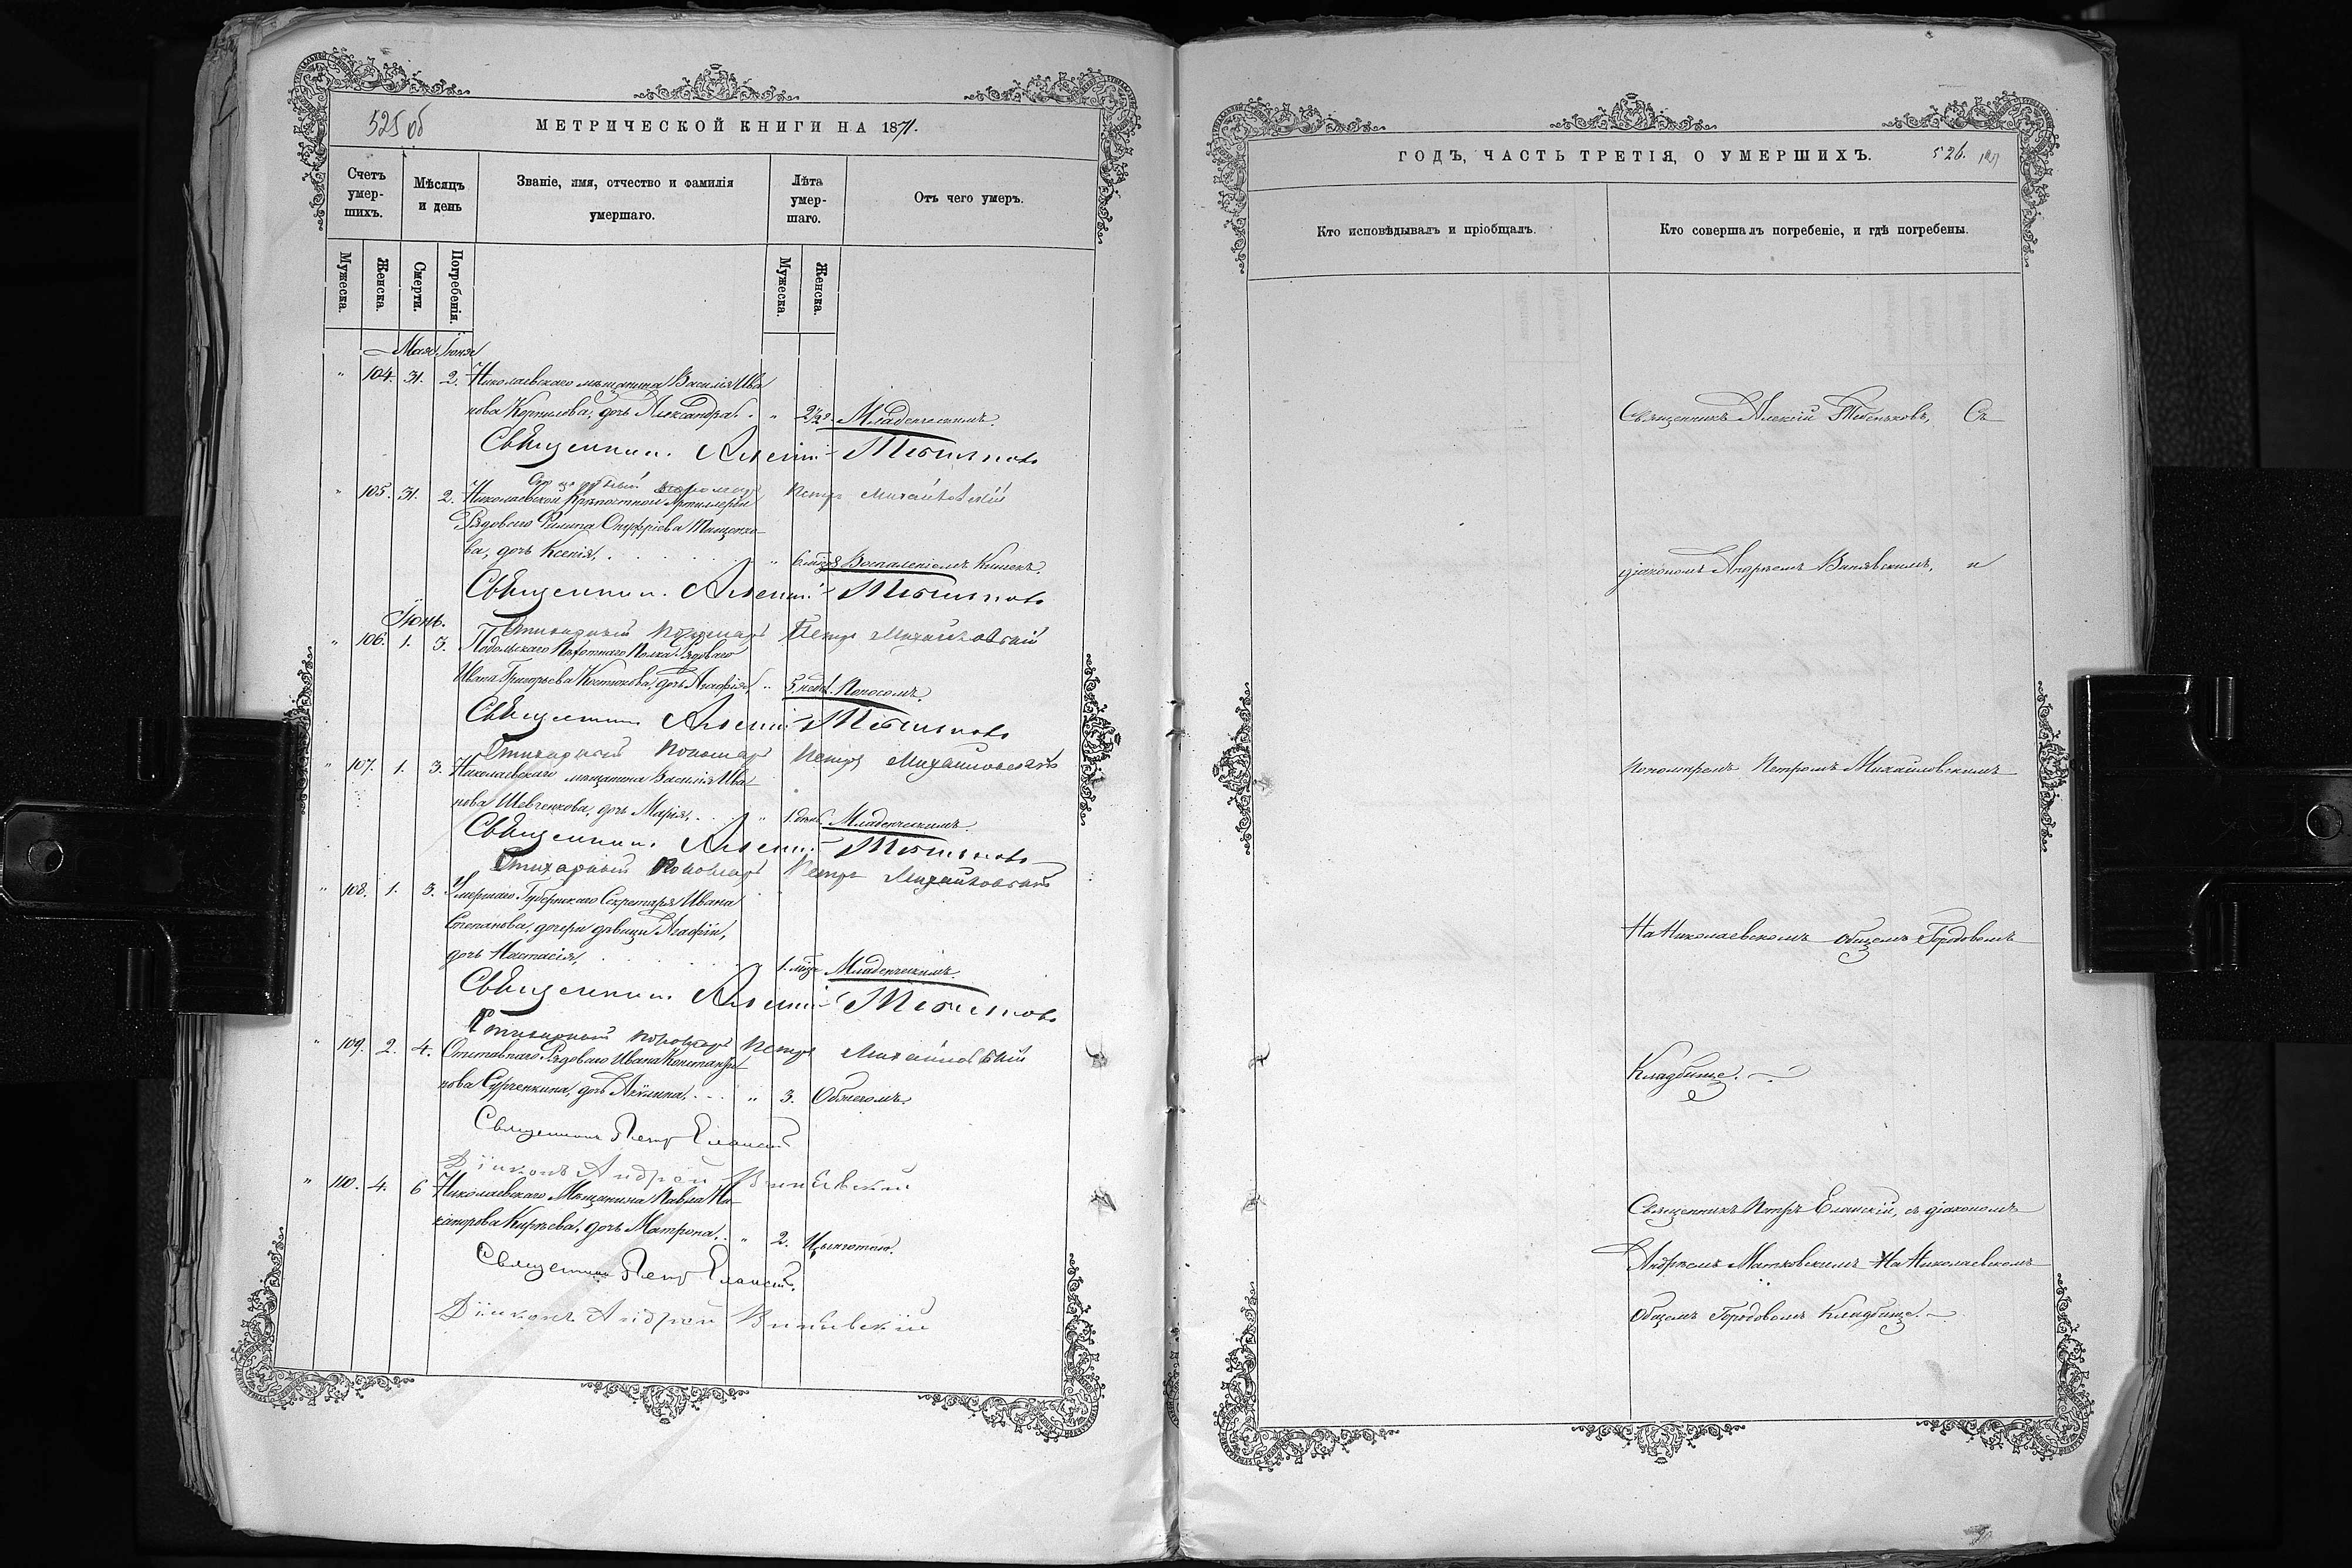 525 об
МЕТРИЧЕСКОЙ КНИГИ НА 1871.
Счетъ умер-шихъ.
Мѣсяцъ и день
Званіе, имя, отчество и фамилія умершаго.
Лѣта умер-шаго.
Отъ чего умеръ.
Мужеска.
Женска.
Смерти.
Погребенія.
Мужеска.
Женска.
Мая Іюня
" 104. 31. 2. Николаевскаго мѣщанина Василія Ива
нова Корнилова, дочь Александра. " 2½ Младенческимъ.
Священникъ Алексій Тебеньковъ
Стихарный Пономарь Петръ Михайловскій
" 105. 31. 2. Николаевской Крѣпостной Артиллеріи
Рядоваго Филипа Онуфріева Тищенко-
ва, дочь Ксенія, " 6 мѣс. Воспаленіемъ Кишекъ.
Священникъ Алексій Тебеньковъ
Іюнь.
Стихарный Пономарь Петръ Михайловскій
" 106. 1. 3. Подольскаго Пѣхотнаго Полка Рядоваго
Ивана Григорьева Костюкова, дочь Агафія, " 5 нед. Поносомъ.
Священникъ Алексій Тебеньковъ
Стихарный Пономарь Петръ Михайловскій
" 107. 1. 3. Николаевскаго мѣщанина Василія Ива
нова Шевченкова, дочь Марія, " 1 день Младенческимъ.
Священникъ Алексій Тебеньковъ
Стихарный Пономарь Петръ Михайловскій
" 108. 1. 3. Умершаго Губернскаго Секретаря Ивана
Степанова, дочери дѣвицы Агафіи,
дочь Настасія, 1. мѣс. Младенческимъ.
Священникъ Алексій Тебеньковъ
Стихарный Пономарь Петръ Михайловскій
" 109. 2. 4. Отставнаго Рядоваго Ивана Константи
нова Сурженкина, дочь Акилина, " 3. Обжогомъ.
Священникъ Петръ Еланскій
Діаконъ Андрей Винявскій
" 110. 4. 6 Николаевскаго Мѣщанина Павла Ни
канорова Кирѣева, дочь Матрона, " 2. Цынготною.
Священникъ Петръ Еланскій.
Діаконъ Андрей Винявскій
ГОДЪ, ЧАСТЬ ТРЕТІЯ, О УМЕРШИХЪ.
526.
Кто исповѣдывалъ и пріобщалъ.
Кто совершалъ погребеніе, и гдѣ погребены.
Священникъ Алексій Тебеньковъ, Съ
діакономъ Андреемъ Винявскимъ, и
пономаремъ Петромъ Михайловскимъ
На Николаевскомъ общемъ Городовомъ
Кладбище.
Священникъ Петръ Еланскій, съ діакономъ
Андреемъ Матковскимъ На Николаевскомъ
общемъ Городовомъ Кладбище.